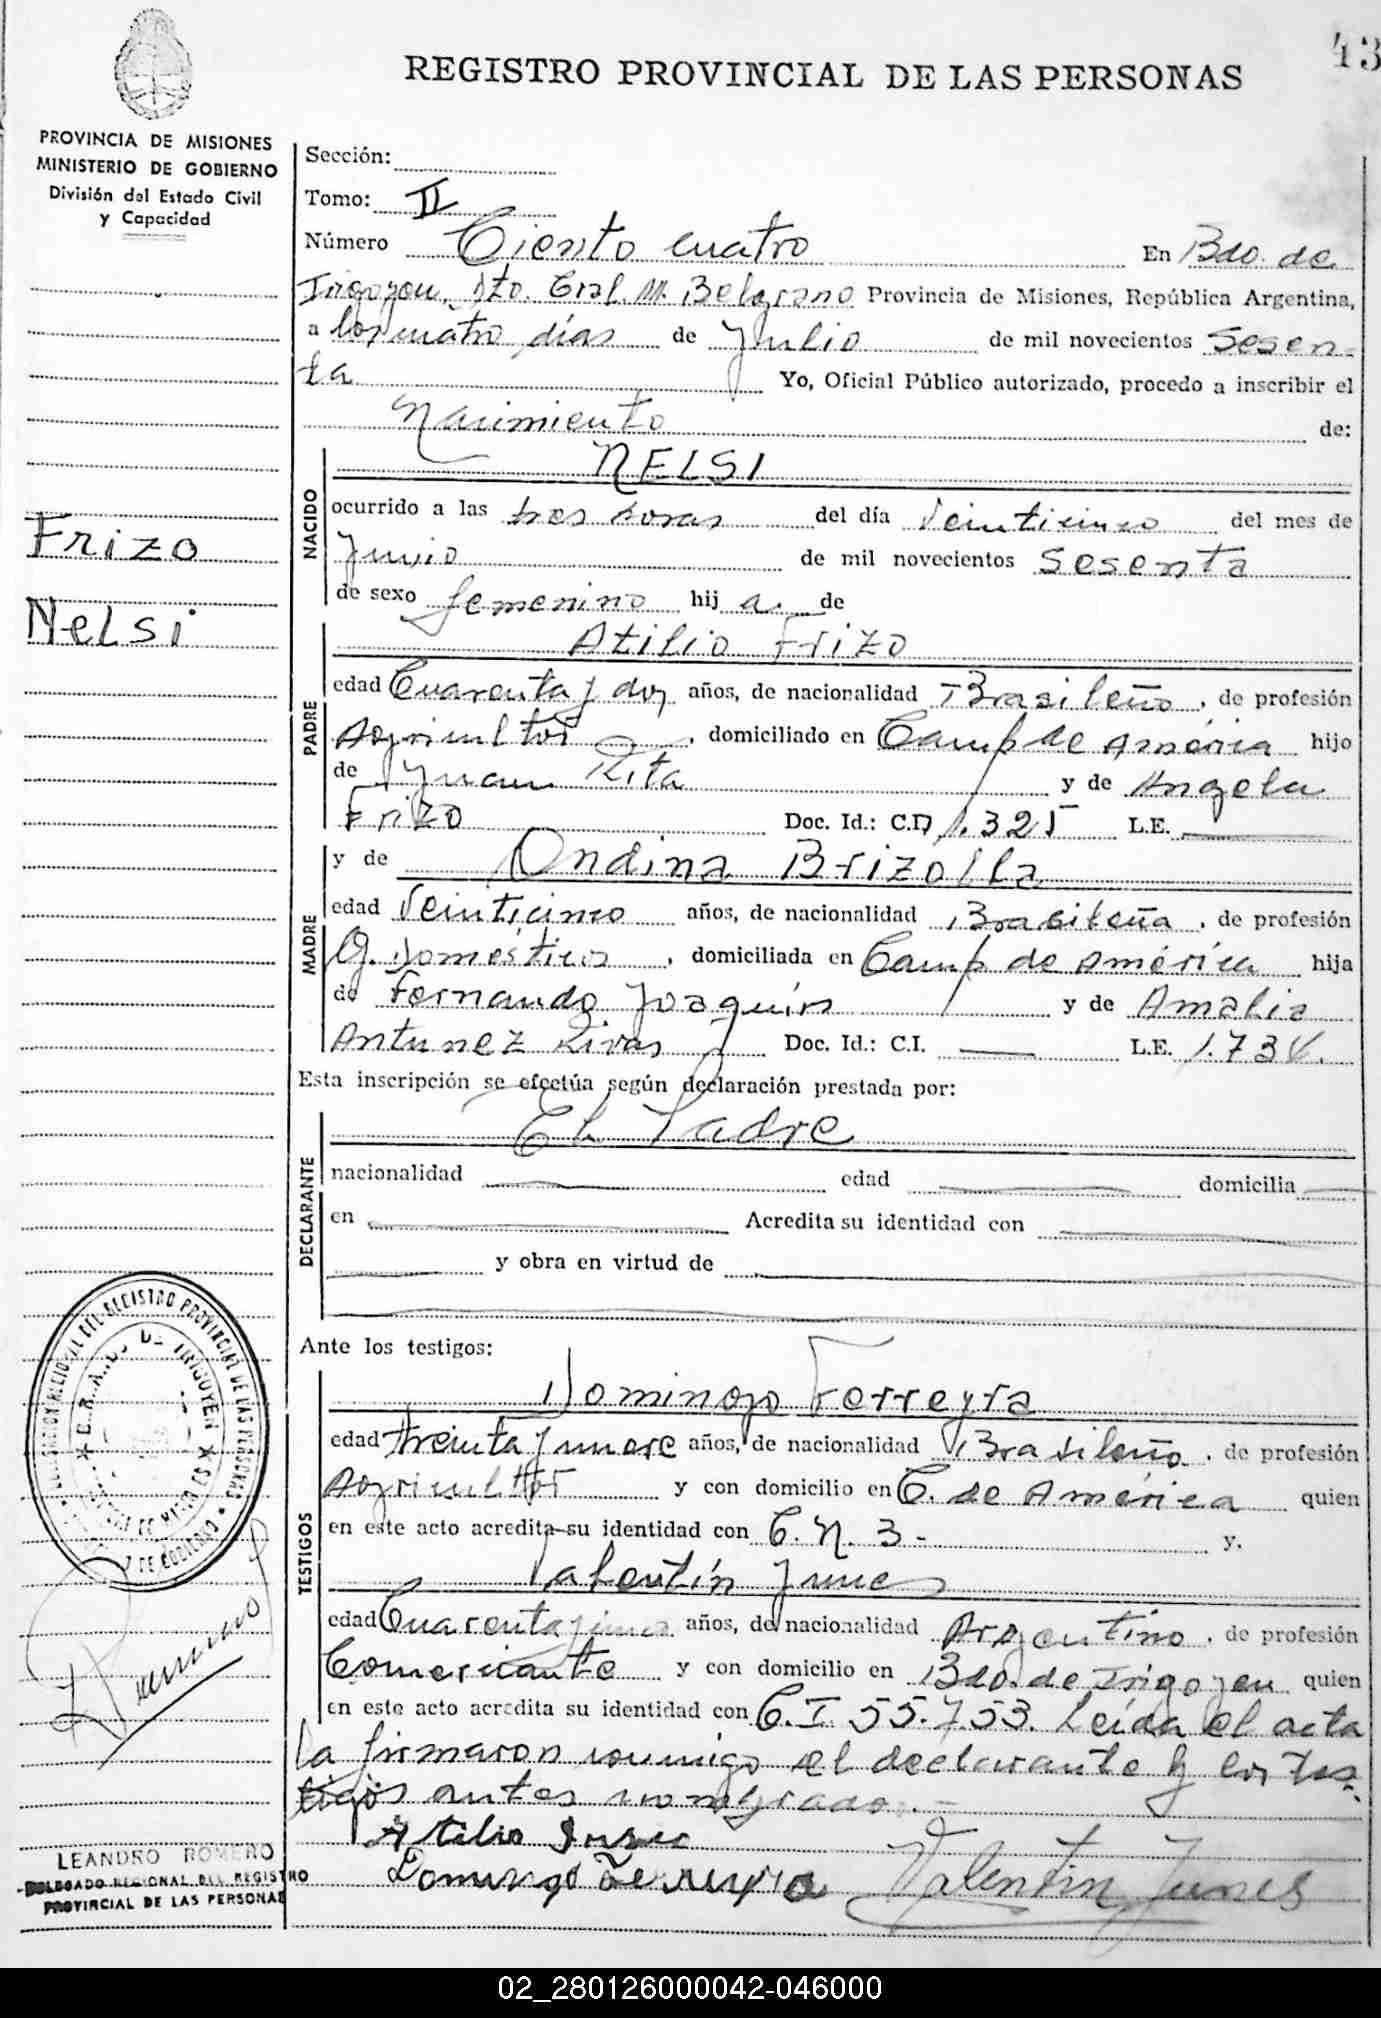 43
REGISTRO PROVINCIAL DE LAS PERSONAS
PROVINCIA DE MISIONES
MINISTERIO DE GOBIERNO
División del Estado Civil
y Capacidad
Frizo
Nelsi
Sección:
Tomo: II
Número Ciento cuatro En Bdo. de
Irigoyen, Dto. Gral. M. Belgrano Provincia de Misiones, República Argentina,
a los cuatro días de Julio de mil novecientos Sesen-
ta Yo, Oficial Público autorizado, procedo a inscribir el
Nacimiento de:
NACIDO
NELSI
ocurrido a las tres horas del día Veinticinco del mes de
Junio de mil novecientos Sesenta
de sexo femenino hij a. de
PADRE
Atilio Frizo
edad Cuarenta y dos años, de nacionalidad Brasileño, de profesión
Agricultor, domiciliado en Camp de América hijo
de Juan Rita y de Angela
Frizo Doc. Id.: C.D 1.325 L.E.
MADRE
y de Ondina Brizolla
edad Veinticinco años, de nacionalidad Brasileña, de profesión
Q. Domésticos, domiciliada en Camp de América hija
de Fernando Joaquín y de Amalia
Antunez Rivas Doc. Id.: C.I. L.E. 1.734.
Esta inscripción se efectúa según declaración prestada por:
DECLARANTE
El Padre
nacionalidad edad domicilia
en Acredita su identidad con
y obra en virtud de
Ante los testigos:
TESTIGOS
Domingo Ferreyra
edad treinta y nueve años, de nacionalidad Brasileño, de profesión
Agricultor y con domicilio en C. de América quien
en este acto acredita su identidad con C. N. 3- y.
Valentín Junes
edad Cuarenta y cinco años, de nacionalidad Argentino, de profesión
Comerciante y con domicilio en Bdo. de Irigoyen quien
en este acto acredita su identidad con C.I. 55.753. Leída el acta
la firmaron conmigo el declarante y los tes-
tigos antes nombrado.-
Atilio
Domingo Ferreyra Valentin Junes
DEL REGISTRO PROVINCIAL DE LAS PERSONAS
DE IRIGOYEN
DE GOBIERNO
LEANDRO ROMERO
DELEGADO REGIONAL DEL REGISTRO
PROVINCIAL DE LAS PERSONAS
02_280126000042-046000